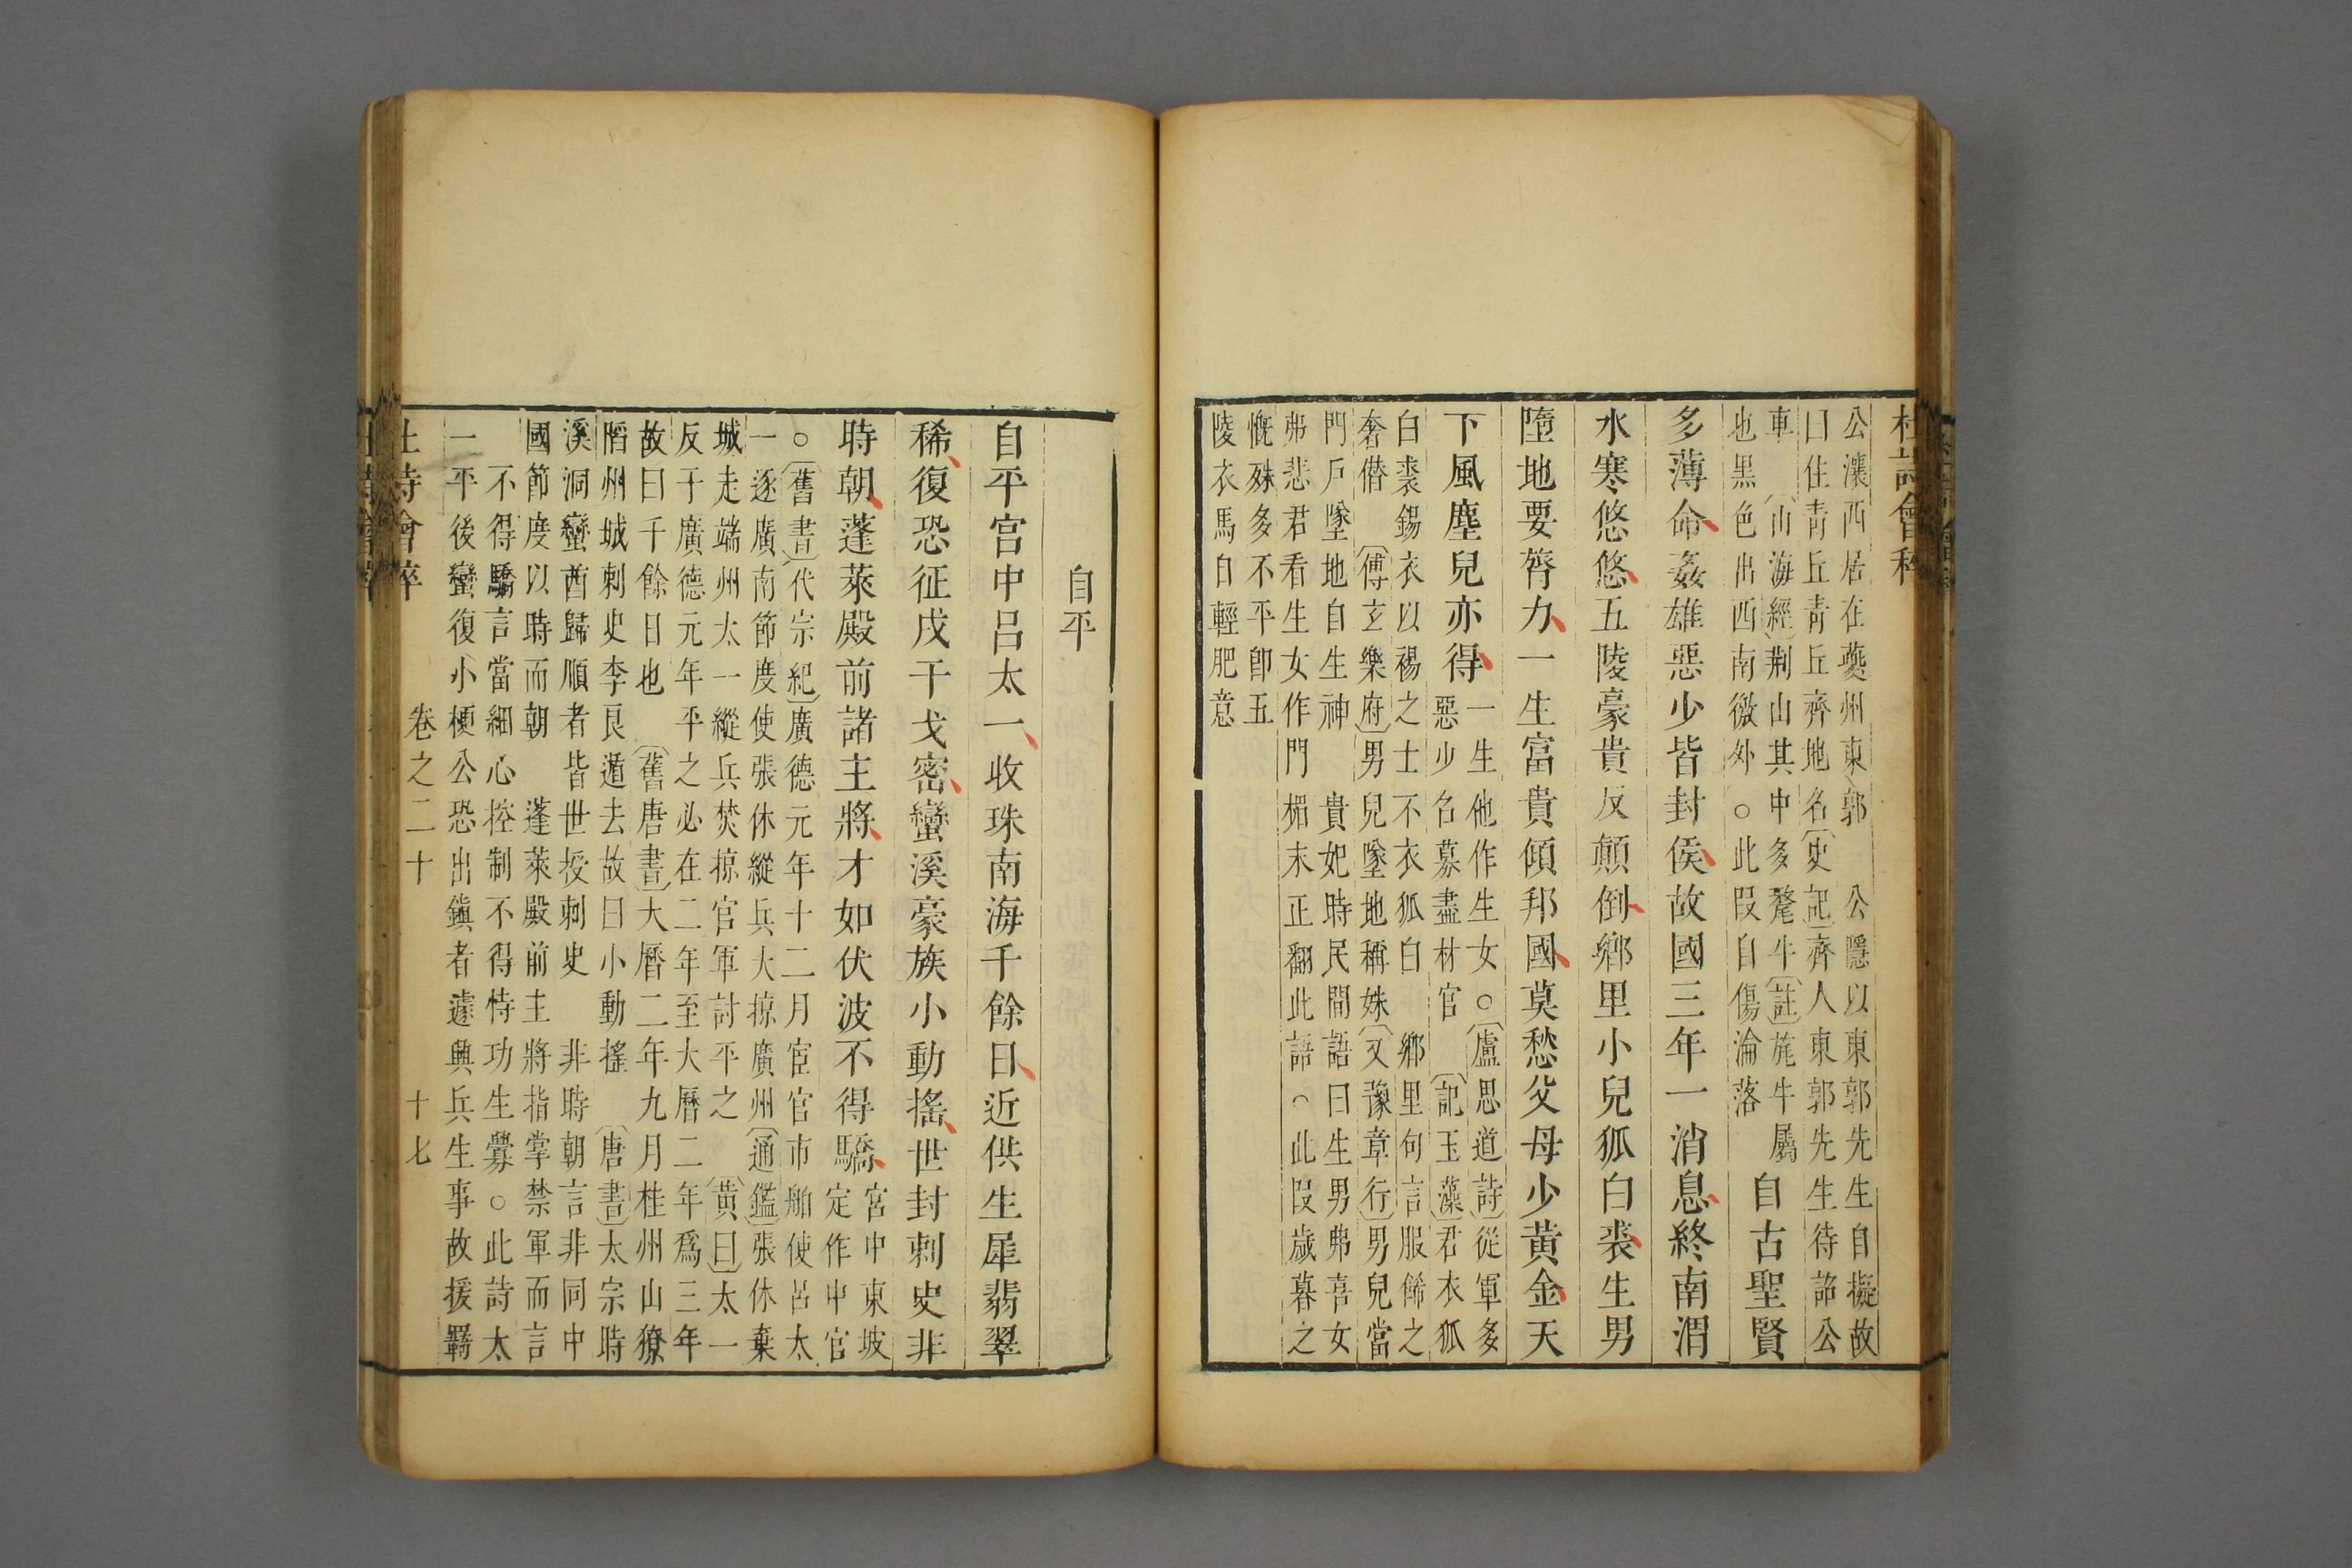 杜詩會稡
公瀼西居在夔州東郭　公隱以東郭先生自擬故
曰住青丘青丘齊地名〔史記〕齊人東郭先生待詔公
車　〔山海經〕荆山其中多犛牛〔註〕旄牛屬
也黑色出西南徼外○此叚自傷淪落
自古聖賢
多薄命姦雄惡少皆封侯故國三年一消息終南渭
水寒悠悠五陵豪貴反顛倒鄉里小兒狐白裘生男
墮地要膂力一生富貴傾邦國莫愁父母少黃金天
下風塵兒亦得
一生他作生女○〔盧思道詩〕從軍多
惡少名募盡材官　〔記玉藻〕君衣狐
白裘錫衣以裼之士不衣狐白　鄉里句言服餙之
奢僣　〔傅玄樂府〕男兒墜地稱姝〔又豫章行〕男兒當
門戶墜地自生神　貴妃時民間語曰生男弗喜女
弗悲君看生女作門楣末正翻此語○此叚歲暮之
慨殊多不平卽五
陵衣馬自輕肥意
自平
自平宫中呂太一收珠南海千餘日近供生犀翡翠
稀復恐征戍干戈密蠻溪豪族小動搖世封刺史非
時朝蓬萊殿前諸主將才如伏波不得驕
宮中東坡
定作中官
○〔舊書代宗紀〕廣德元年十二月宦官市舶使呂太
一逐廣南節度使張休縱兵大掠廣州〔通鑑〕張休棄
城走端州太一縱兵焚掠官軍討平之　〔黃曰〕太一
反于廣德元年平之必在二年至大曆二年爲三年
故曰千餘日也　〔舊唐書〕大曆二年九月桂州山獠
䧟州城刺史李良遁去故曰小動搖　〔唐書〕太宗時
溪洞蠻酋歸順者皆世授刺史　非時朝言非同中
國節度以時而朝　蓬萊殿前主將指掌禁軍而言
不得驕言當細心控制不得恃功生釁○此詩太
一平後蠻復小梗公恐出鎭者遽興兵生事故援羈
杜詩會稡
卷之二十
十七